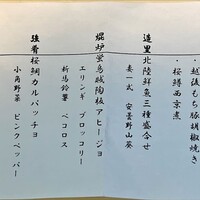 ・越後もち豚胡椒焼き
・桜鱒西京煮
造里 北陸鮮魚三種盛合せ
妻一式 安曇野山葵
焜炉 蛍烏賊陶板アヒージョ
エリンギ ブロッコリー
新馬鈴薯 ペコロス
強肴 桜鯛カルパッチョ
小角野菜 ピンクペッパー